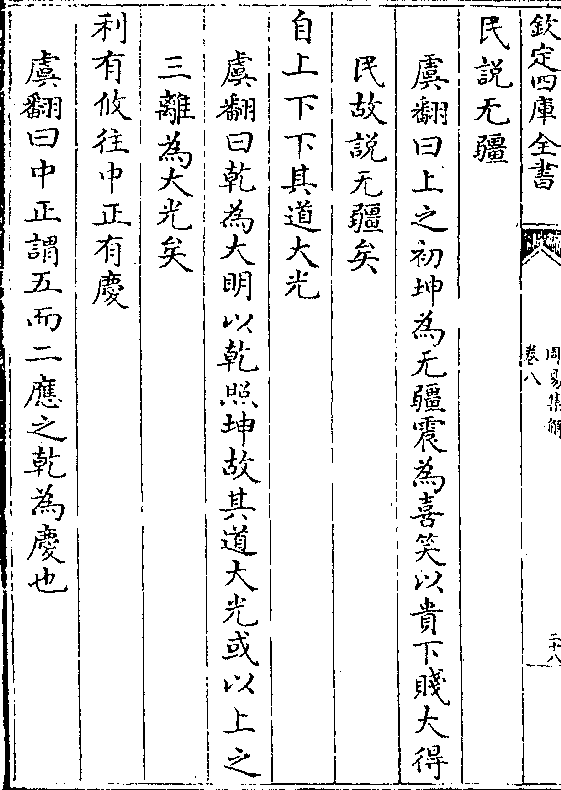 欽定四庫全書
周易集解
卷八
二十八
民說无疆
虞翻曰上之初坤為无疆震為喜笑以貴下賤大得
民故說无疆矣
自上下下其道大光
虞翻曰乾為大明以乾照坤故其道大光或以上之
三離為大光矣
利有攸往中正有慶
虞翻曰中正謂五而二應之乾為慶也